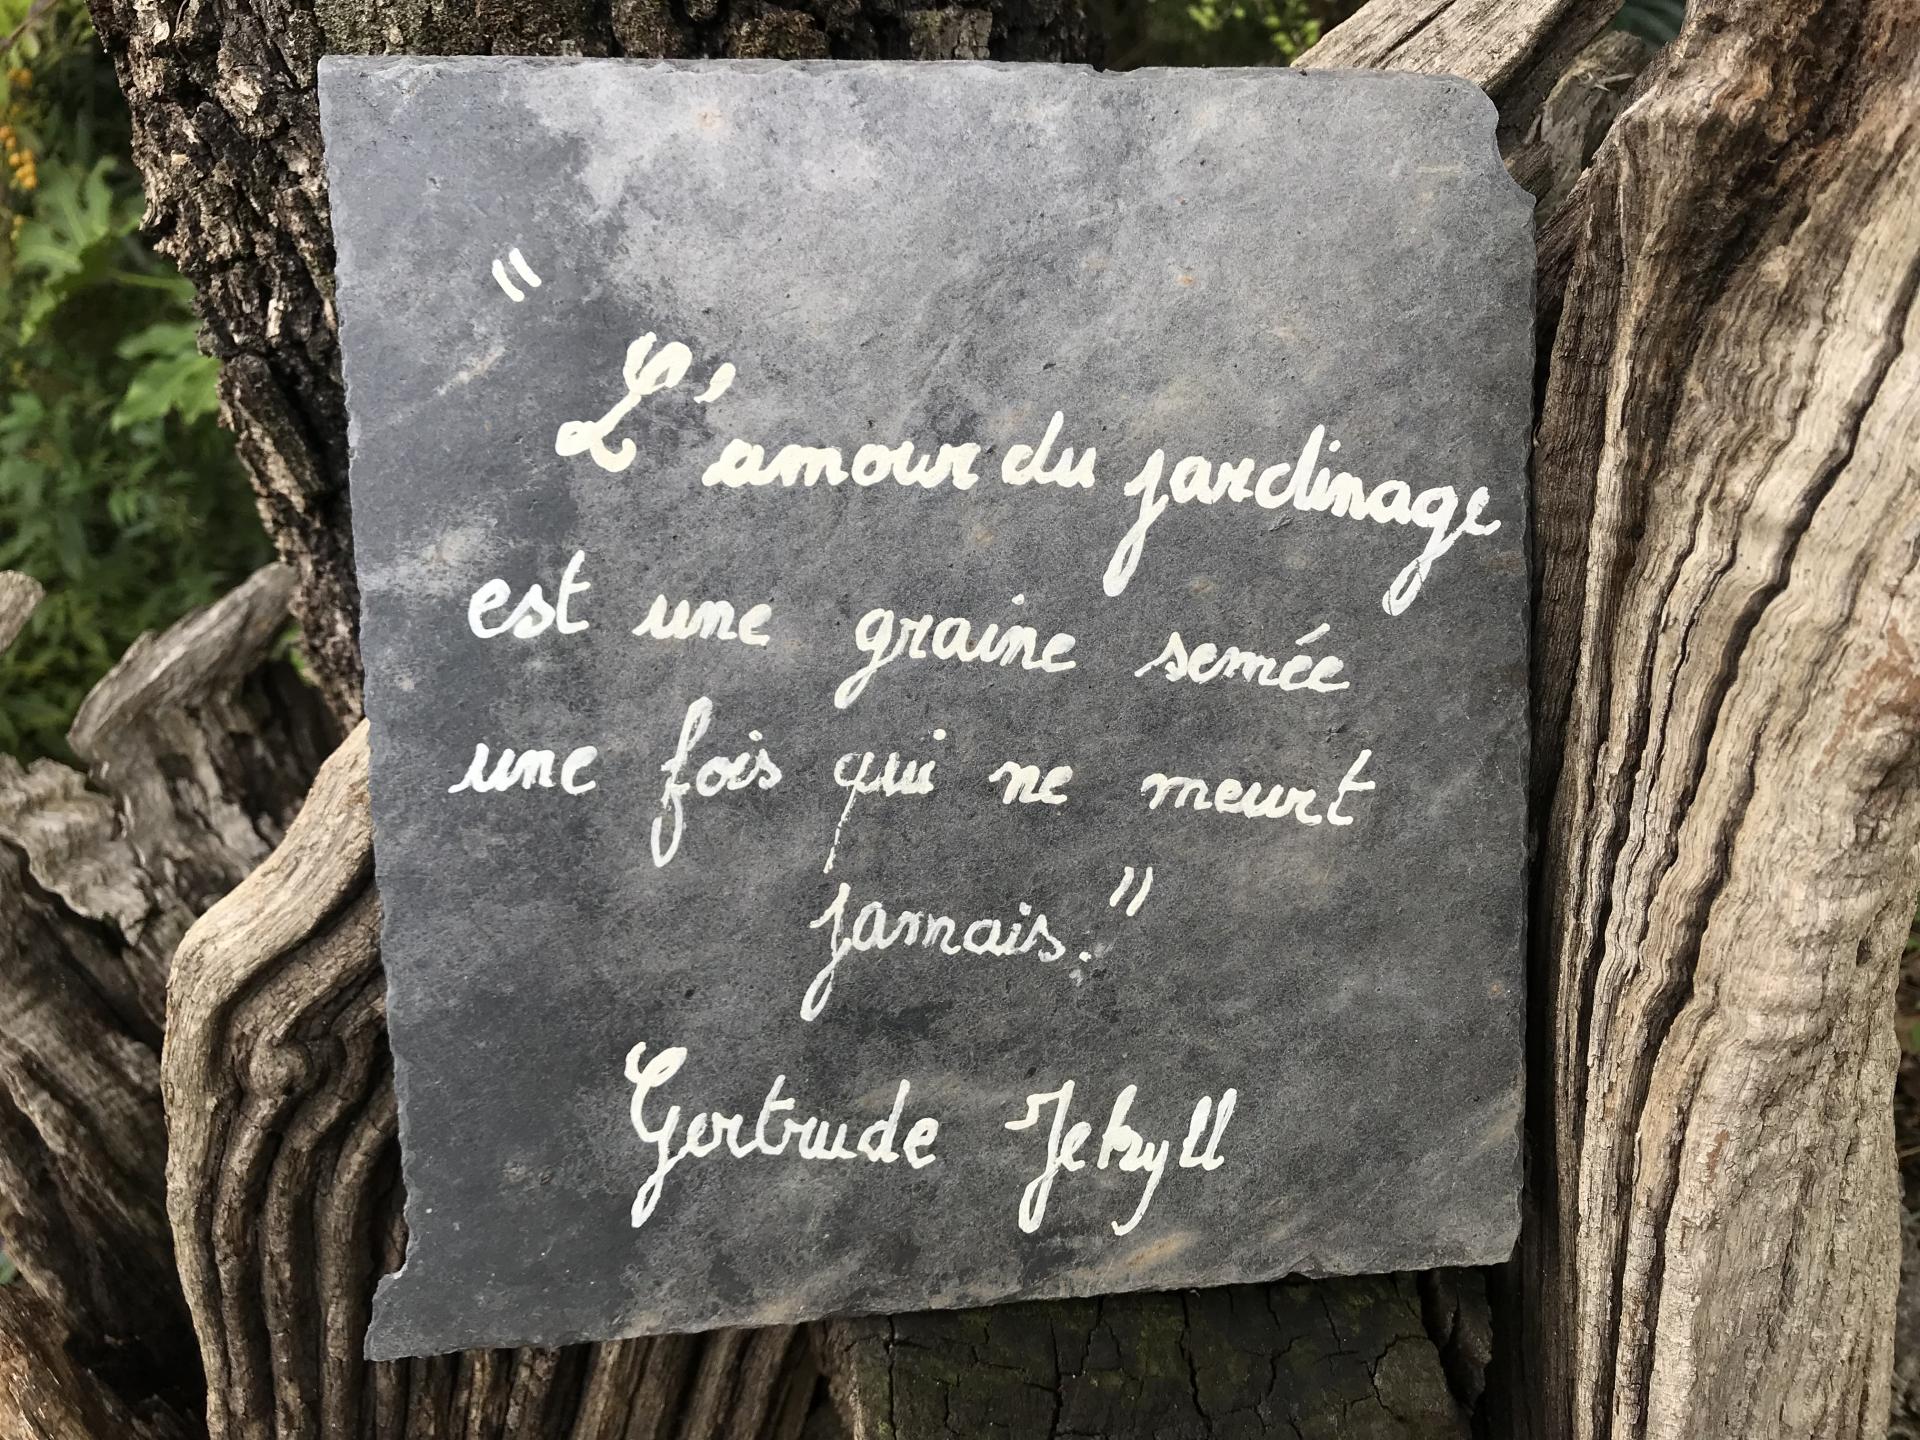 "
L'amour du jardinage
est une graine semée
une fois qui ne meurt
jamais."
Gertrude Jekyll